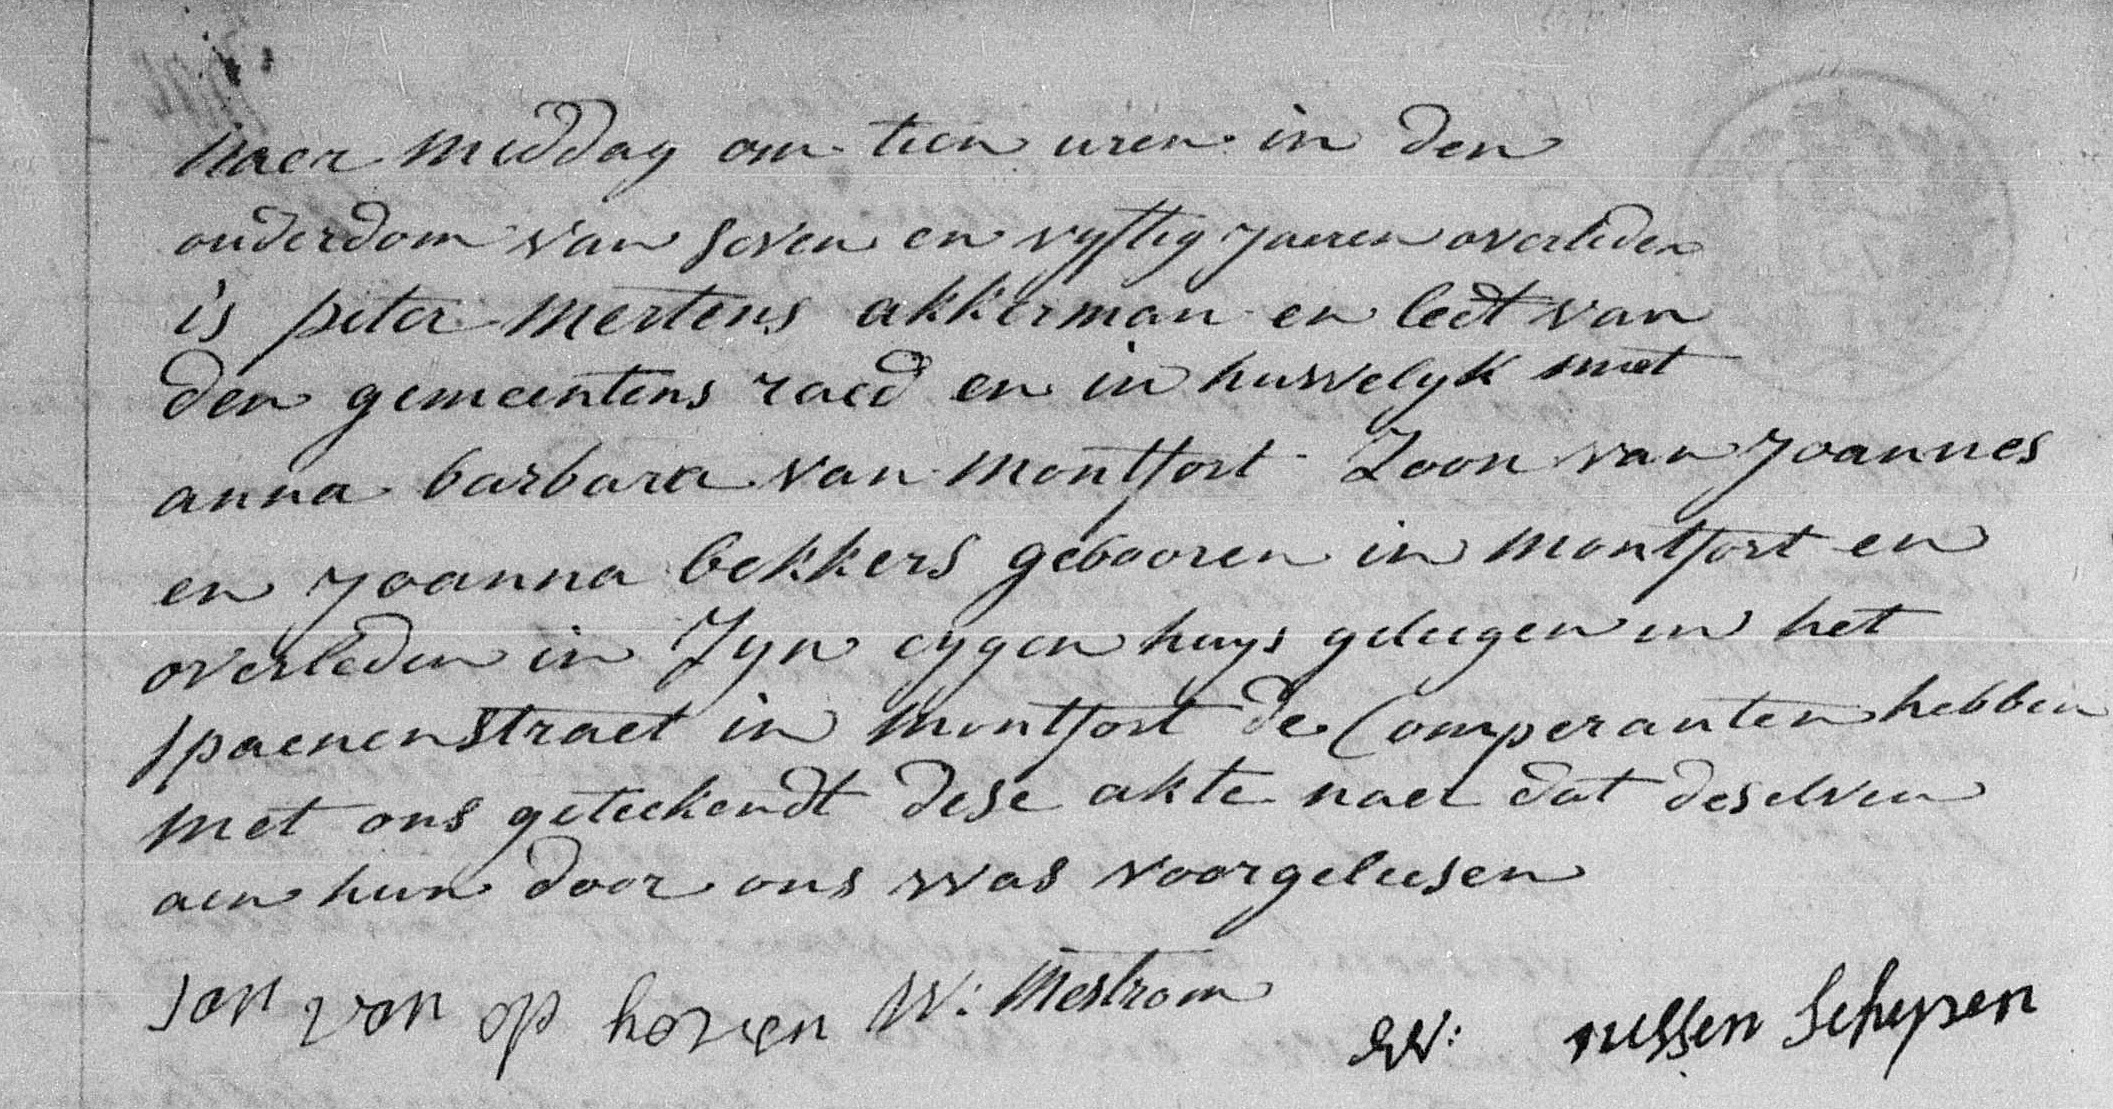 naer middag om tien uren in den
ouderdom van seven en vyftig jaeren overleden
is peter Mertens akkerman en ledt van
den gemeentens raed en in huwelyk met
anna barbara van montfort Zoon van Joannes
en Joanna bekkers gebooren in montfort en
overleden in Zyn eygen huys geleegen in het
spaenenstraet in montfort de Comperanten hebben
met ons geteekendt dese akte naer dat deselven
aen hun door ons was voorgeleesen
Jan van op hoven W: Mestrom
W: russen Schepen